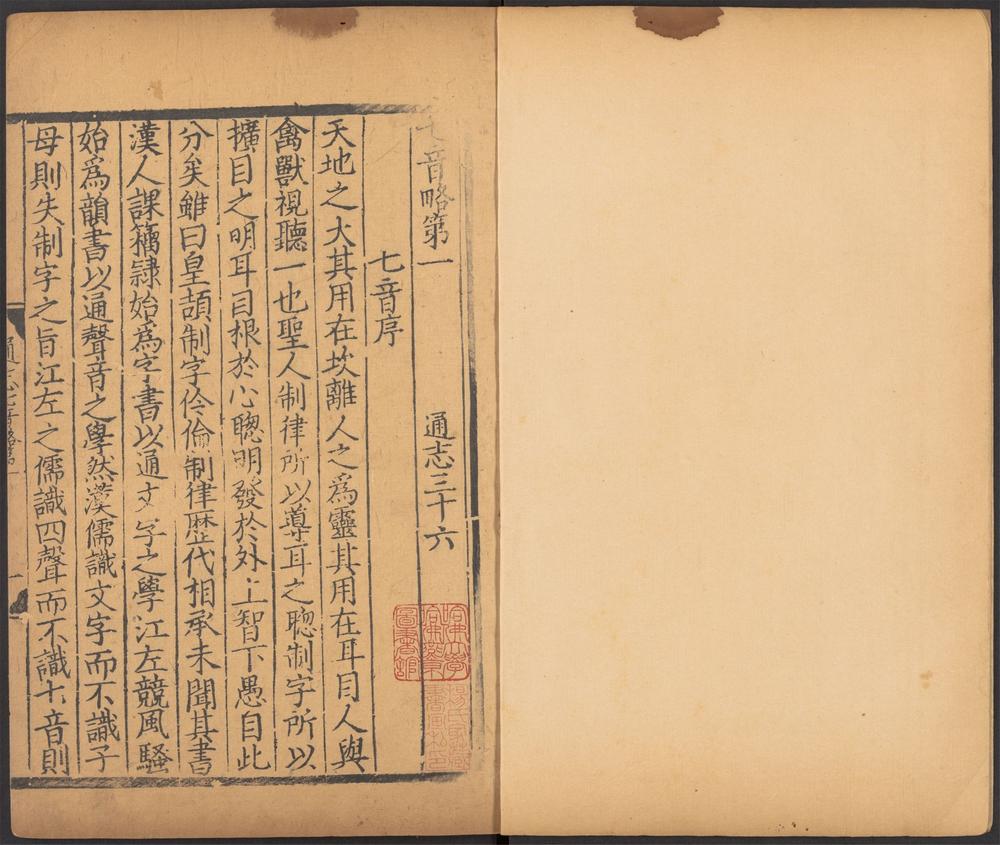 七音略第一 通志三十六
七音序
天地之大其用在坎離人之爲靈其用在耳目人與
禽獸視聽一也聖人制律所以導耳之聰制字所以
擴目之明耳目根於心聰明發於外上智下愚自此
分矣雖曰皇頡制字伶倫制律歷代相承未聞其書
漢人課籒隷始爲字書以通文字之學江左競風騷
始爲韻書以通聲音之學然漢儒識文字而不識子
母則失制字之旨江左之儒識四聲而不識七音則
通志七音略第一
哈佛大學哈佛燕京圖書館